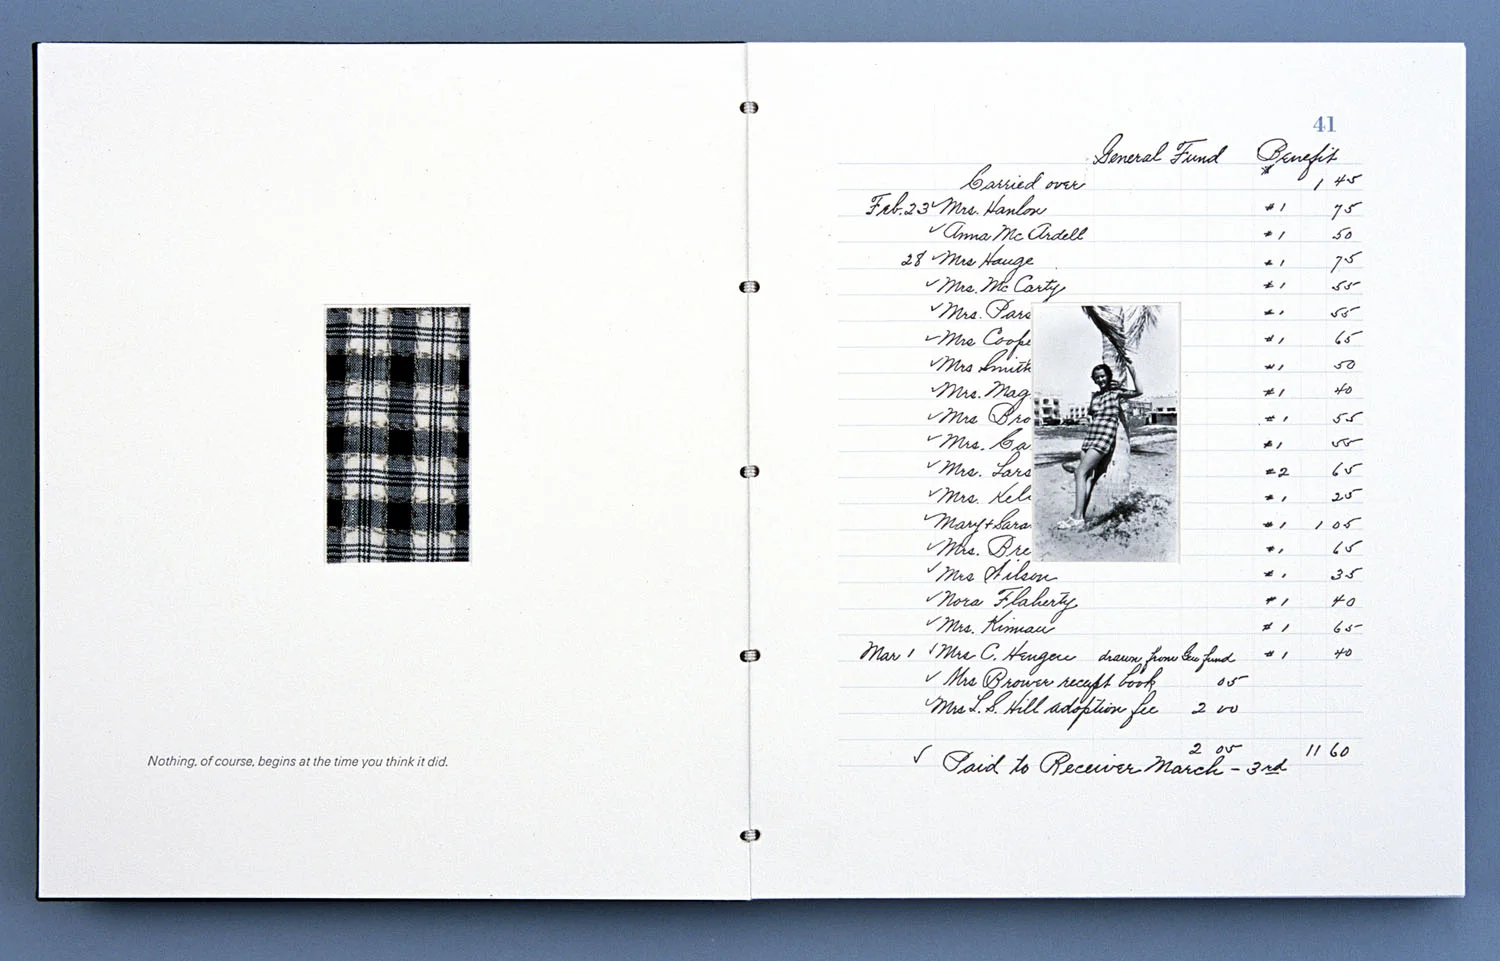 Nothing, of course, begins at the time you think it did.
41
General Fund Benefit
Carried over 1 45
Feb. 23 ✓ Mrs. Hanlon #1 75
✓ Anna McArdell #1 50
28 ✓ Mrs Hauge #1 75
✓ Mrs. McCarty #1 55
✓ Mrs. Pars #1 55
✓ Mrs Coope #1 65
✓ Mrs Smith #1 50
✓ Mrs. Mag #1 40
✓ Mrs Bro #1 55
✓ Mrs. Ca #1 55
✓ Mrs. Lars #2 65
✓ Mrs. Kel #1 25
✓ Mary + Sara #1 1 05
✓ Mrs. Bre #1 65
✓ Mrs Wilson #1 35
✓ Nora Flaherty #1 40
✓ Mrs. #1 65
Mar 1 ✓ Mrs C. drawn from Gen fund #1 40
✓ Mrs Brower receipt book 05
✓ Mrs L. S. Hill adoption fee 2 00
2 05 11 60
✓ Paid to Receiver March - 3rd